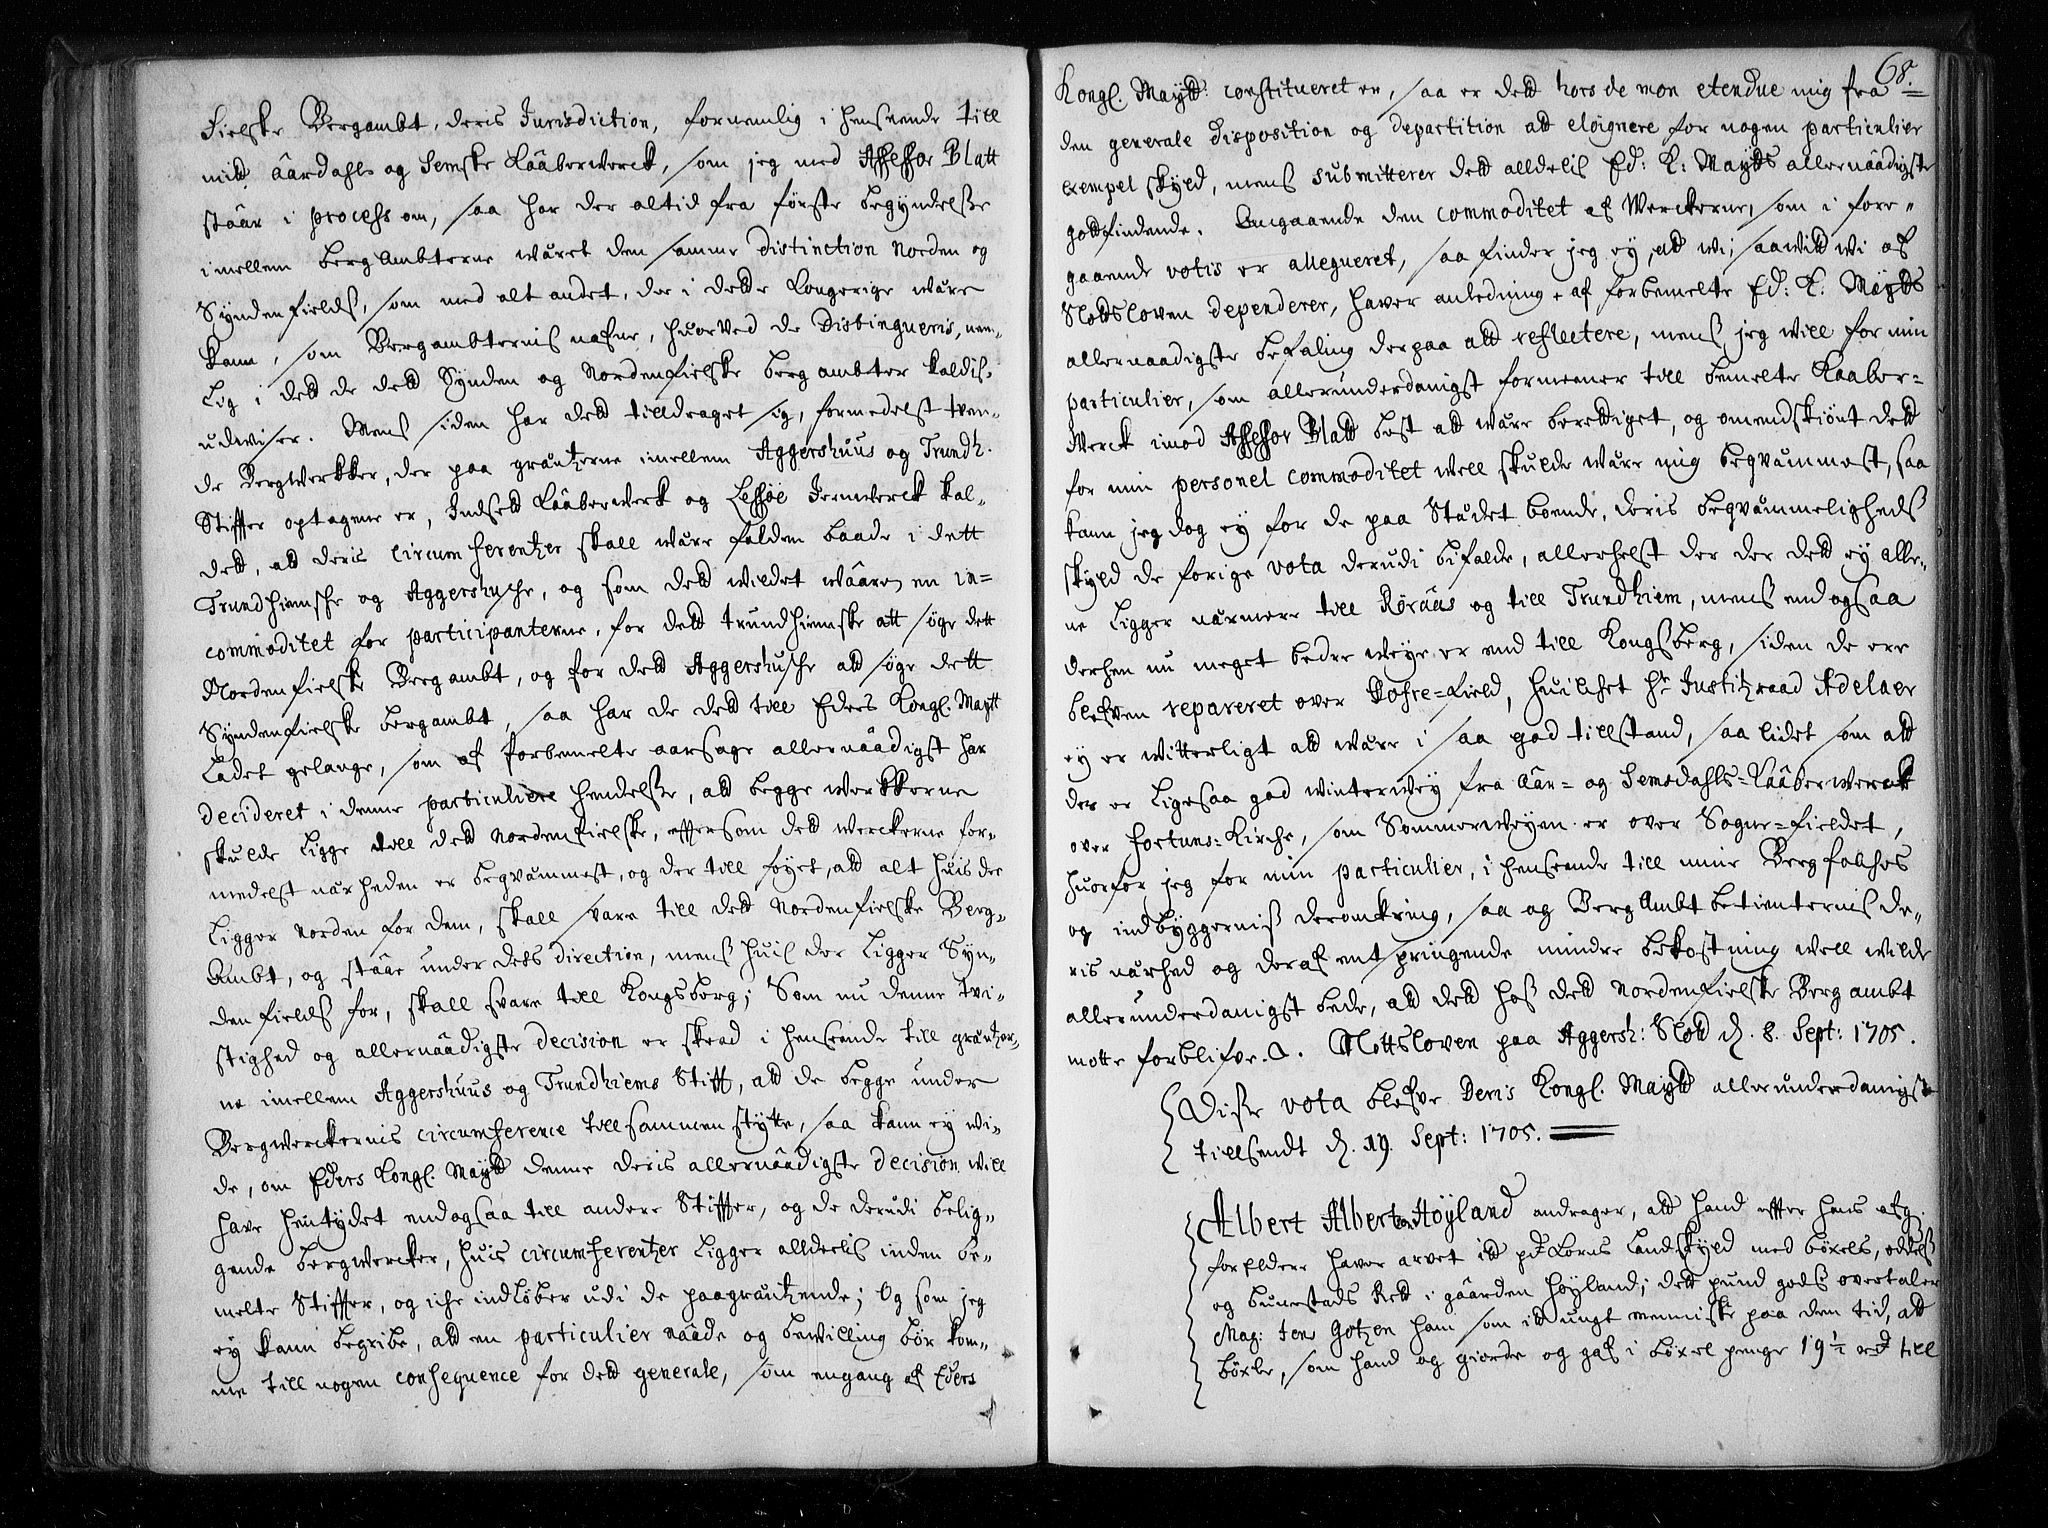 Fielske Bergambt, deris Jurisdiction, fornemlig i henseende till
mit Aardahls og Semske Kaaberwerck, som jeg med Assessor Blatt
staar i process om, saa har der altid fra første begyndelsse
imellem bergambterne wäret den samme distinction Norden og
Syndenfields, som med alt andet, der i dette Kongerige wäre
kann, som Bergambternis nafne, huorved de distingueris, nem-
lig i det de dett Synden og Nordenfielske bergambter kaldis,
udwiser. Mens siden har dett tilldraget sig, formedelst tven-
de Bergwerkker, der paa gräntzerne imellem Aggershuus og Trundh.
Stiffter optagene er, Indsett Kaaberwerk og Lessøe Jernwerck kal-
det, at deris circumferentzer skall wäre falden baade i dett
Trundhiemske og Aggershuske, og som dett wildet wäären en in-
commoditet for participanterne, for dett trundhiemske att søge dett
Nordenfielske Bergambt, og for dett Aggershuske att søge dett
Syndenfielske bergambt, saa har de dett till Eders Kongl. Maytt
ladet gelange, som af forbemelte aarsage allernaadigst har
decideret i denne particuliere hendelsse, att begge werkkerne
skulde ligge till dett Nordenfielske, efftersom dett werckerne for-
medelst närheden er beqvämmest, og der till føyet, att alt huis der
ligger norden for dem, skall svare till dett Nordenfielske Berg-
Ambt, og stäär under dets direction, mens huis der ligger Syn-
denfields for, skall svare till Kongsberg; Som nu denne tvi-
stighed og allernaadigste decision er skeed i henseende till gräntzer-
ne imellem Aggershuus og Trundhiems Stifft, att de begge under
Bergwerckernis circumference tillsammen støtte, saa kann ey wi-
de, om Eders Kongl. Maytt denne deris allernaadigste decision will
have hentydet endogsaa till andere Stiffter, og de derudi belig-
gende bergwercker, huis circumferentzer ligger alldelis inden be-
melte Stiffter, og iche indløber udi de paagräntzende; Og som jeg
ey kann begribe, att en particulier naade og bewilling bør kom-
me till nogen consequence for dett generale, som engang af Eders
68.
Kongl. Maytt constitueret er, saa er dett hors de mon etendue mig fra
den generale disposition og departition att eloignere for nogen particulier
exempel skyld, mens submitterer dett alldelis Ed: K: Maytts allernaadigste
gottfindende. Angaaende den commoditet af Werckerne, som i fore-
gaaende votis er allegueret, saa finder jeg ey, att wi, saawitt wi af
Slottsloven dependerer, haver anledning af forbemelte Ed: K: Maytts
allernaadigste befaling derpaa att reflectere, mens jeg will for min
particulier, som allerunderdanigst formeener till bemelte Kaaber-
Werck imod Assessor Blatt best att wäre berettiget, og omendskiønt dett
for min personel commoditet well skulde wäre mig beqvämmest, saa
kann jeg dog ey for de paa Stædet boende, deris beqvämmeligheds
skyld de forige vota derudi bifalde, allerhelst der der dett ey alle-
ne ligger närmere till Røraas og till Trundhiem, mens endogsaa
derhen nu meget bedre weye er end till Kongsberg, siden de ere
blefven repareret over Dofre-Field, huilchet Hr Justitzraad Adelaer
ey er witterligt att wäre i saa god tillstand, saa lidet som att
der er ligesaa god winterwey fra Aar- og Semsdahls-Kaaberwerck
over Fortuns-Kirche, som Sommerweyen er over Sogne-Fieldet,
huorfor jeg for min particulier, i henseende till mine Bergfolches
og indbyggernis deromkring, saa og BergAmbt betienternis de-
ris närhed og deraf entspringende mindre bekostning well wilde
allerunderdanigst bede, att dett hos dett Nordenfielske Bergambt
motte forblifve. Slottsloven paa Aggersh: Slott d. 8. Sept: 1705.
Disse vota blefve Deris Kongl. Maytt allerunderdanigst
tillsendt d. 19. Sept: 1705.
Albert Albertsen Høyland andrager, att hand effter hans afg.
forældre haver arvet itt pd Korns Landskyld med bøxels, oddels
og bunestads Rett i gaarden Høyland; dett pund gods overtaler
Mag: Jens Gotzen ham som itt ungt menniske paa den tid, att
bøxle, som hand og giorde og gaf i bøxel penge 19½ rd till